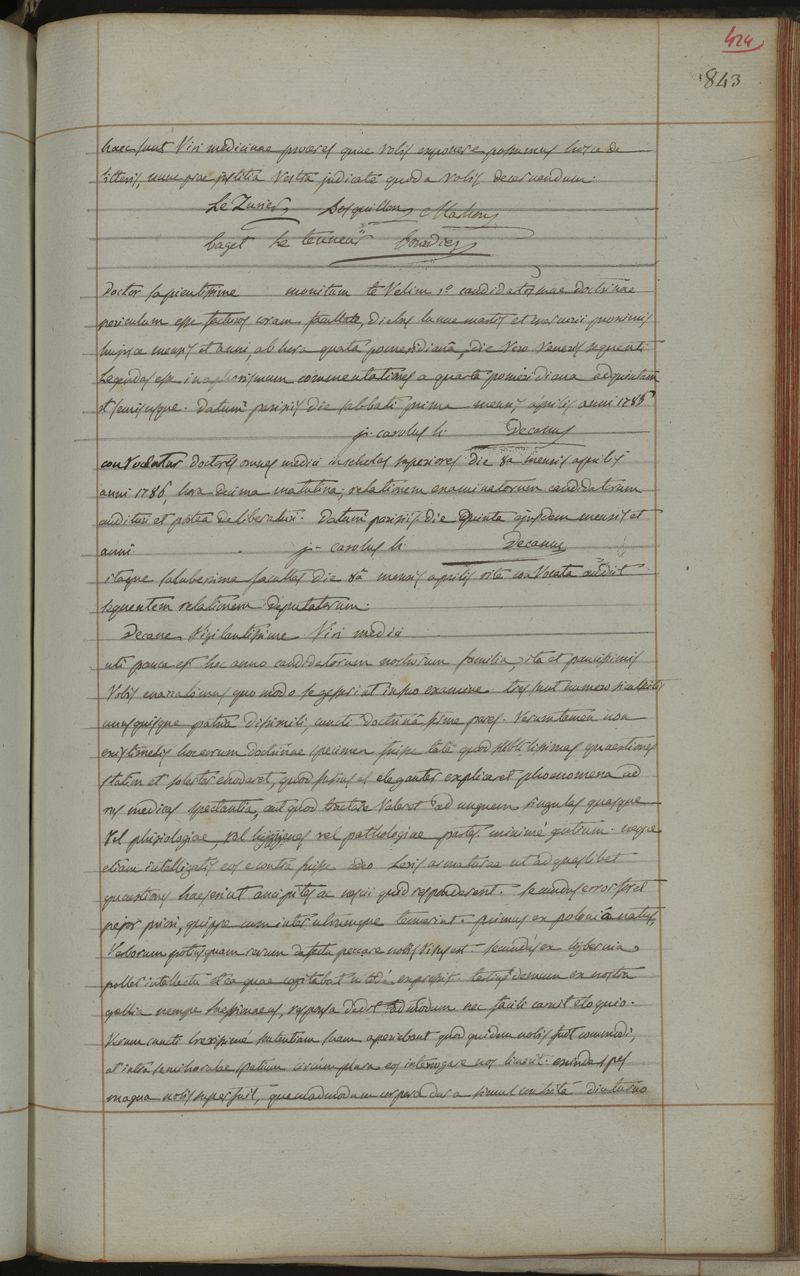 424
843
haec sunt Viri medicinae proceres quae Vobis exponere possumus hisce de
litteris, nunc prae justitia Vestra judicate quod a Vobis decernendum.
Le Zurier Desquillons Mashens
baget Le tenneur bourdier
Doctor sapientissime monitum te Velim 1º candidatos suae doctrinae
periculum esse facturos coram facultate, diebus lunae martis et mercurii proximis
hujusce mensis et anni, ab hora quarta pomeridiana, die Vero Veneris sequenti
Legendas esse in aphorismum commentationes a quarta pomeridiana ad quintam
et semis usque. Datum parisiis die sabbati prima mensis aprilis anni 1786
j. carolus h. Decanus
convocentur doctores omnes medici in scholas superiores die 8a mensis aprilis
anni 1786, hora decima matutina, relationem examinatorum candidatorum
audituri et postea deliberaturi. Datum parisiis die quinta ejusdem mensis et
anni. j. carolus h. Decanus
itaque saluberrima facultas die 8a mensis aprilis rite convocata audiit
sequentem relationem deputatorum.
Decane Vigilantissime Viri medici
uti pauca est hoc anno candidatorum nostrorum familia, ita et paucissimis
Vobis enarrabimus quomodo se gesserint in suo examine. tres sunt numero
unusquisque patria dissimili, cuncti doctrina ferme pares. Verumtamen non
existimetis hoc eorum doctrinae specimen fuisse tale quod subtilissimas quaestiones
statim et solerter enodaret, quod fusius ac eleganter explicaret phoenomena ad
res medicas spectantia, aut quod tractare Valeret ad unguem singulas quasque
Vel phisiologiae, vel hygienes vel pathologiae partes. minime gentium. neque
etiam intelligatis eos e contra fuisse adeo levis armaturae ut ad quaslibet
quaestiones haeserint ancipites ac nescii quid responderent. secundus error foret
pejor priori, quippe cum inter utrumque tenuerint. primus ex polonia natus,
Verborum potius quam rerum defectu peccare nobis Visus est. secundus ex hybernia
pollet intellectu et ea quae cogitabat nitide expressit. tertius demum ex nostra
gallia nempe responsa dedit ad modum nec facili caruit eloquio.
Verum cuncti brevissime sententiam suam aperiebant quod quidem nobis fuit commodi,
et intra semihorulae spatium circum plura eos interrogare nos licuit. exinde spes
magna nobis superfuit, quemadmodum corpora dura simul contrita diuturno